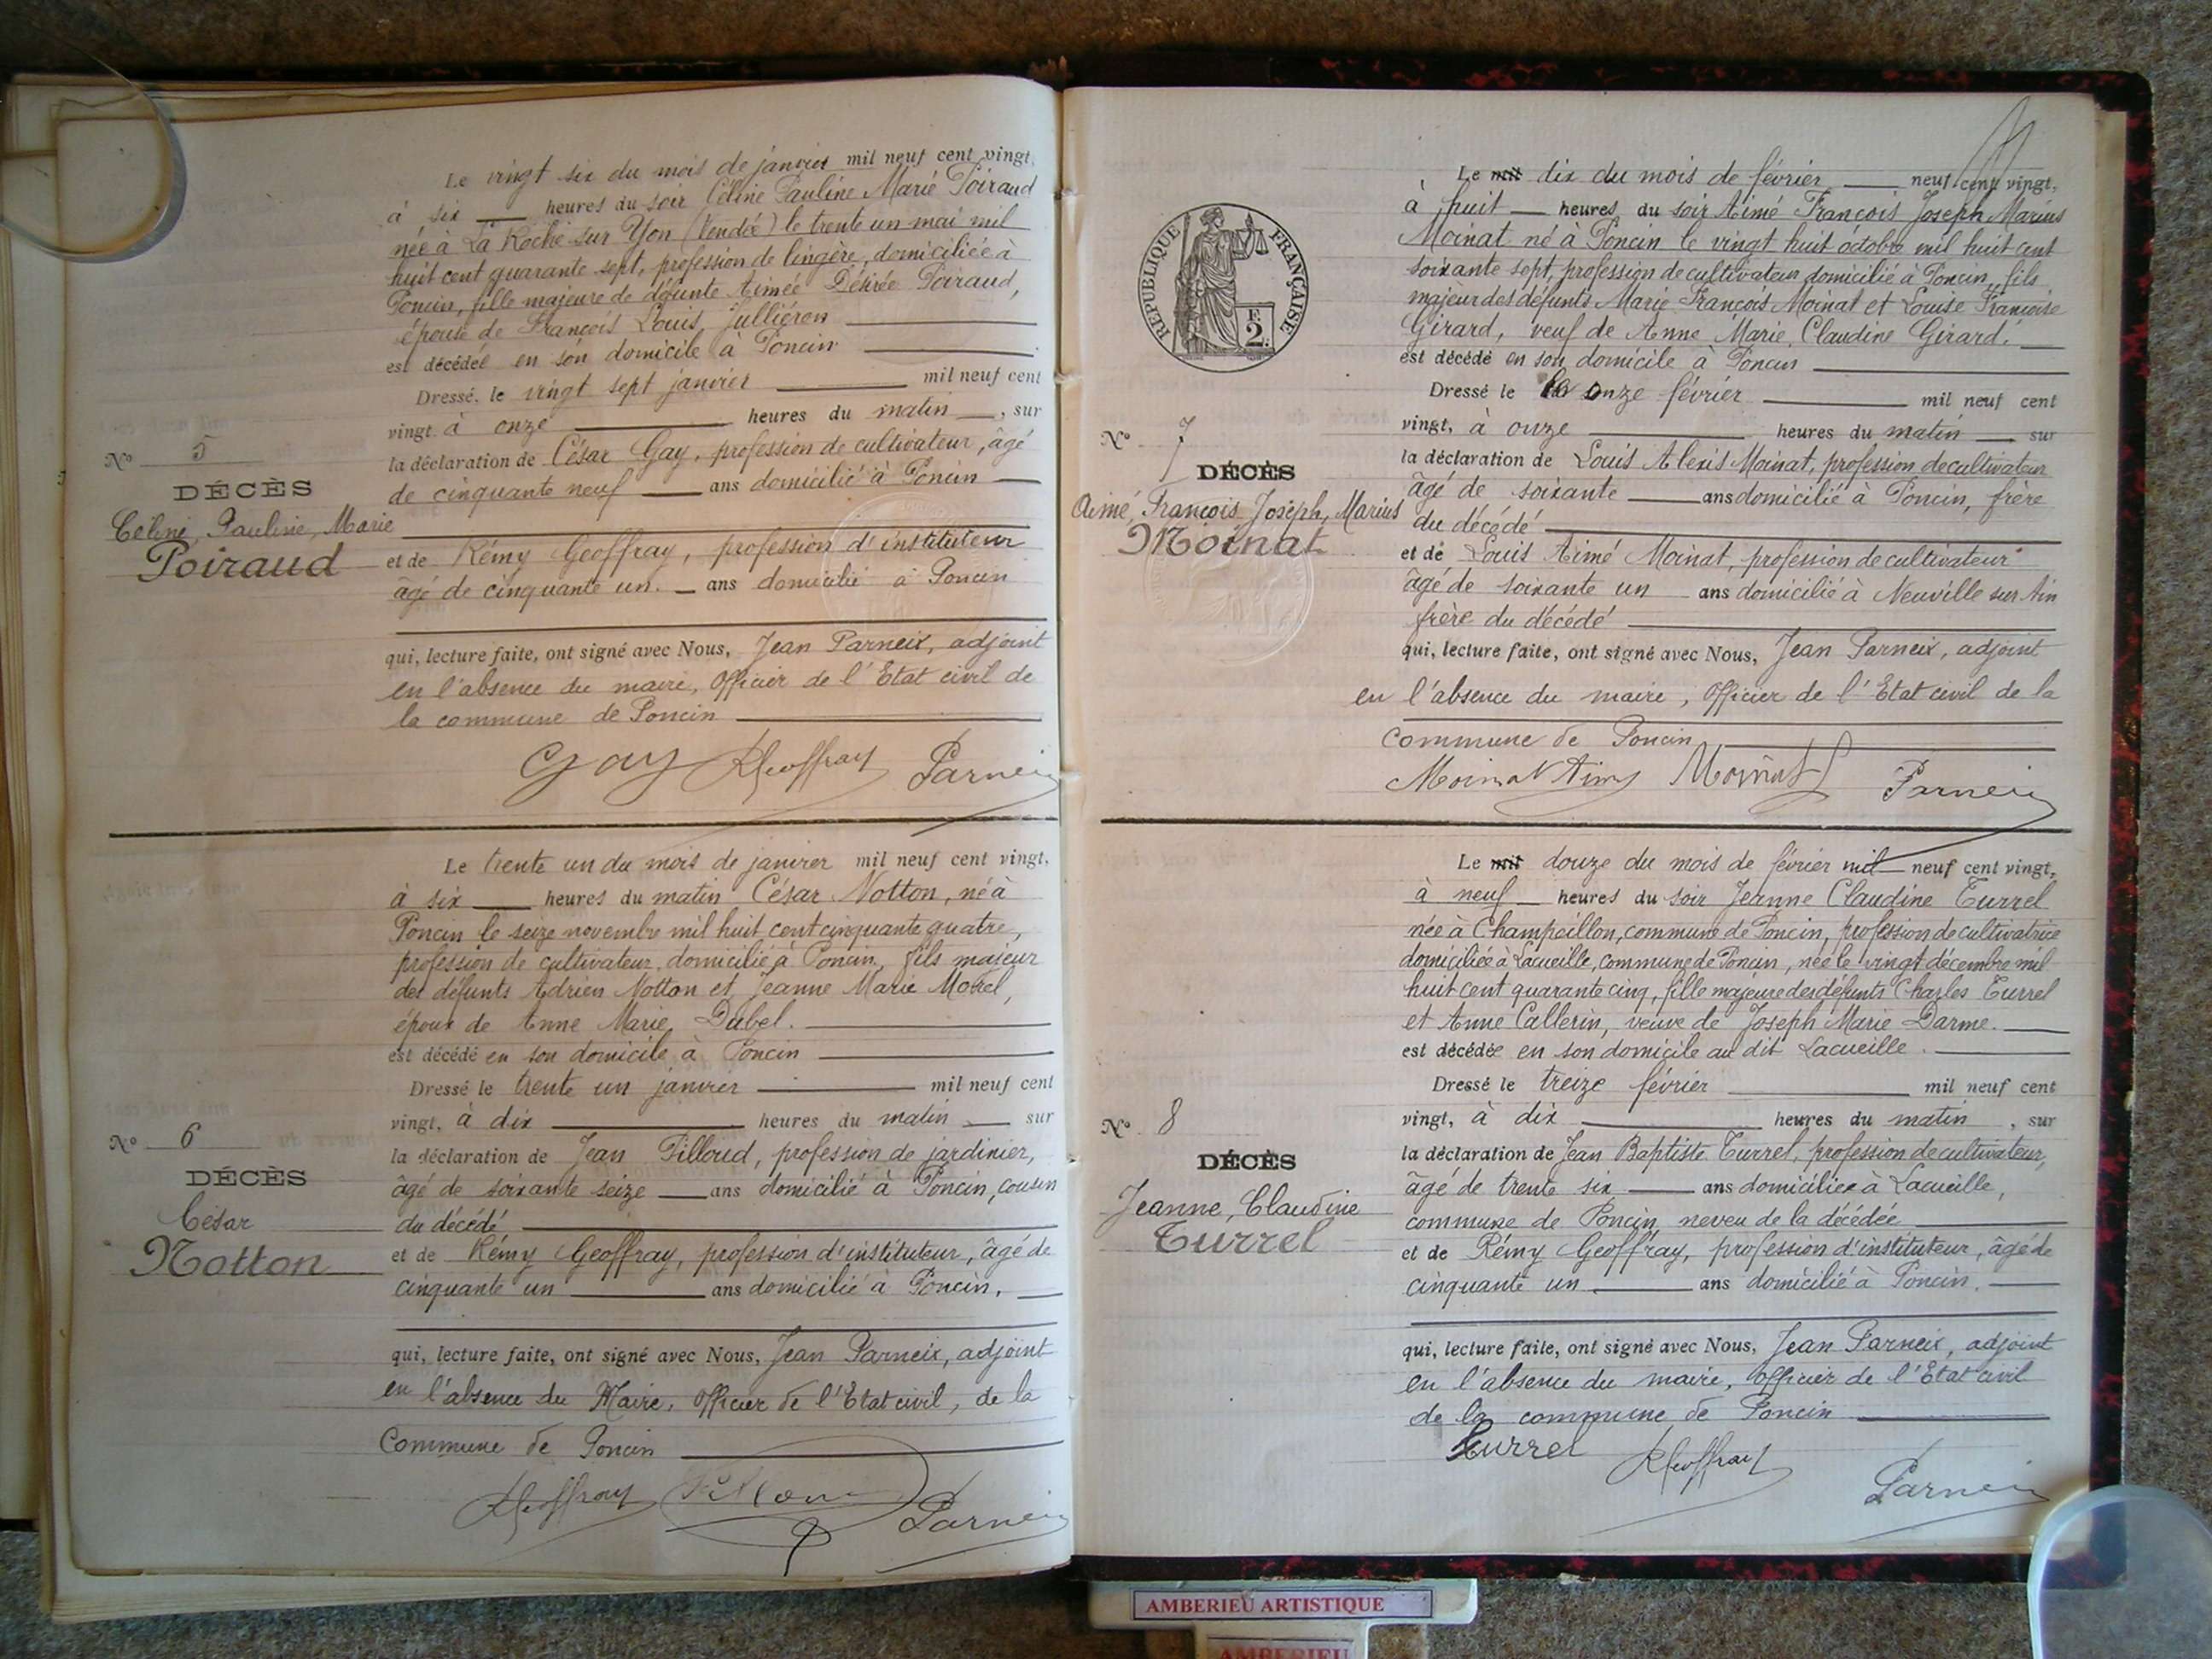 Le vingt six du mois de janvier mil neuf cent vingt,
à six heures du soir Céline Pauline Marie Poiraud
née à La Roche sur Yon (Vendée) le trente un mai mil
huit cent quarante sept, profession de lingère, domiciliée à
Poncin, fille majeure de défunte Aimée Désirée Poiraud,
épouse de François Louis Julliéron
est décédée en son domicile à Poncin
Dressé, le vingt sept janvier mil neuf cent
vingt à onze heures du matin, sur
la déclaration de César Gay, profession de cultivateur, âgé
de cinquante neuf ans domicilié à Poncin
et de Rémy Geoffray, profession d'instituteur
âgé de cinquante un. ans domicilié à Poncin
qui, lecture faite, ont signé avec Nous, Jean Parneix, adjoint
en l'absence du maire, Officier de l'Etat civil de
la commune de Poncin
Gay RGeoffray Parneix
N° 5
DÉCÈS
Céline, Pauline, Marie
Poiraud
Le trente un du mois de janvier mil neuf cent vingt,
à six heures du matin César Notton, né à
Poncin le seize novembre mil huit cent cinquante quatre,
profession de cultivateur, domicilié à Poncin, fils majeur
des défunts Adrien Notton et Jeanne Marie Morel,
époux de Anne Marie Dubel.
est décédé en son domicile à Poncin
Dressé le trente un janvier mil neuf cent
vingt, à dix heures du matin sur
la déclaration de Jean Pilloud, profession de jardinier,
âgé de soixante seize ans domicilié à Poncin, cousin
du décédé
et de Rémy Geoffray, profession d'instituteur, âgé de
cinquante un ans domicilié à Poncin,
qui, lecture faite, ont signé avec Nous, Jean Parneix, adjoint
en l'absence du Maire, Officier de l'Etat civil, de la
Commune de Poncin
RGeoffray Parneix
N° 6
DÉCÈS
César
Notton
RÉPUBLIQUE FRANÇAISE
F
2.
Le mil dix du mois de février neuf cent vingt,
à huit heures du soir Aimé François Joseph Marius
Moinat né à Poncin le vingt huit octobre mil huit cent
soixante sept, profession de cultivateur domicilié à Poncin, fils
majeur des défunts Marie François Moinat et Louise Françoise
Girard, veuf de Anne Marie Claudine Girard.
est décédé en son domicile à Poncin
Dressé le onze février mil neuf cent
vingt, à onze heures du matin sur
la déclaration de Louis Alexis Moinat, profession de cultivateur
âgé de soixante ans domicilié à Poncin, frère
du décédé
et de Louis Aimé Moinat, profession de cultivateur
âgé de soixante un ans domicilié à Neuville sur Ain
frère du décédé
qui, lecture faite, ont signé avec Nous, Jean Parneix, adjoint
en l'absence du maire, Officier de l'Etat civil de la
Commune de Poncin
Moinat Aimé Moinat Parneix
N° 7
DÉCÈS
Aimé, François, Joseph, Marius
Moinat
Le mil douze du mois de février mil neuf cent vingt,
à neuf heures du soir Jeanne Claudine Turrel
née à Champeillon, commune de Poncin, profession de cultivatrice
domiciliée à Lacueille, commune de Poncin, née le vingt décembre mil
huit cent quarante cinq, fille majeure des défunts Charles Turrel
et Anne Callerin, veuve de Joseph Marie Darme.
est décédée en son domicile au dit Lacueille.
Dressé le treize février mil neuf cent
vingt, à dix heures du matin, sur
la déclaration de Jean Baptiste Turrel, profession de cultivateur,
âgé de trente six ans domiciliée à Lacueille,
commune de Poncin neveu de la décédée
et de Rémy Geoffray, profession d'instituteur, âgé de
cinquante un ans domicilié à Poncin.
qui, lecture faite, ont signé avec Nous, Jean Parneix, adjoint
en l'absence du maire, Officier de l'Etat civil
de la commune de Poncin
Turrel RGeoffray Parneix
N° 8
DÉCÈS
Jeanne, Claudine
Turrel
AMBERIEU ARTISTIQUE
AMBERIEU